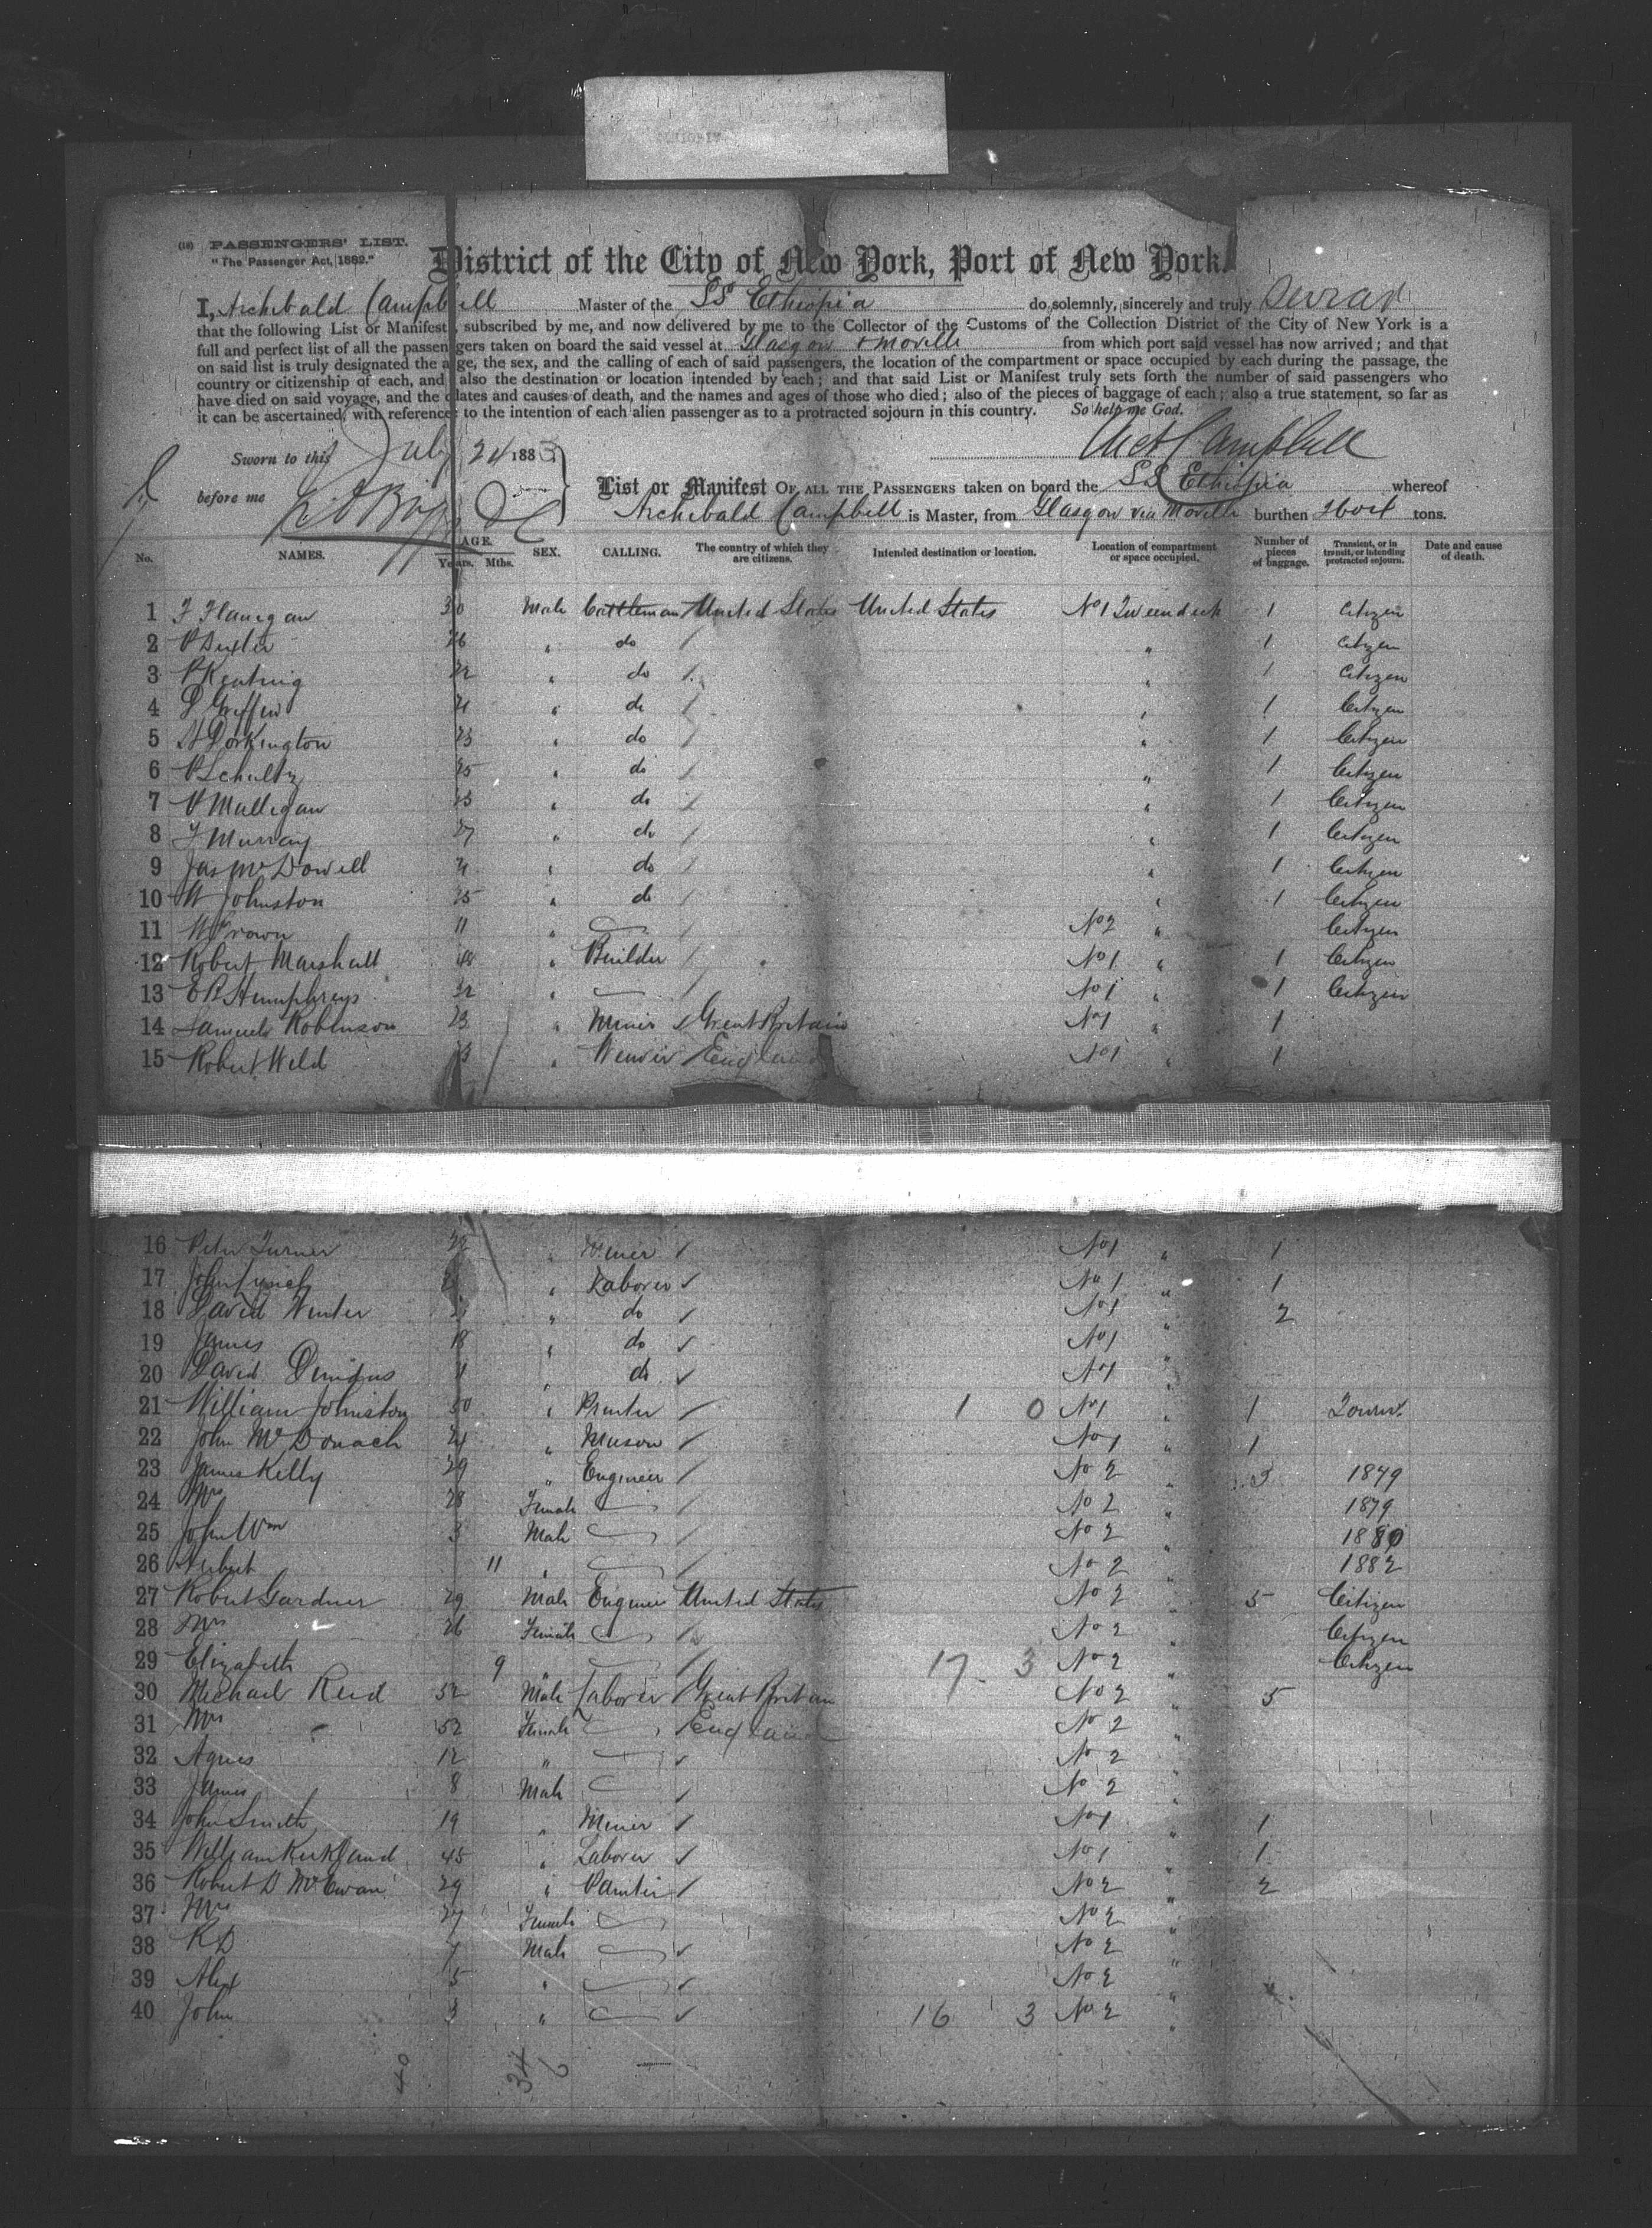 (18) PASSENGERS' LIST.
"The Passenger Act, 1882."
District of the City of New York, Port of New York.
I, Archibald Campbell Master of the SS Ethiopia do solemnly, sincerely and truly swear
that the following List or Manifest, subscribed by me, and now delivered by me to the Collector of the Customs of the Collection District of the City of New York is a
full and perfect list of all the passengers taken on board the said vessel at Glasgow & Moville from which port said vessel has now arrived; and that
on said list is truly designated the age, the sex, and the calling of each of said passengers, the location of the compartment or space occupied by each during the passage, the
country or citizenship of each, and also the destination or location intended by each; and that said List or Manifest truly sets forth the number of said passengers who
have died on said voyage, and the dates and causes of death, and the names and ages of those who died; also of the pieces of baggage of each; also a true statement, so far as
it can be ascertained, with reference to the intention of each alien passenger as to a protracted sojourn in this country. So help me God.
Sworn to this July 24 188
Campbell
before me
List or Manifest OF ALL THE PASSENGERS taken on board the SS Ethiopia whereof
Archibald Campbell is Master, from Glasgow via Moville burthen tons.
No. NAMES. AGE. Years. Mths. SEX. CALLING. The country of which they are citizens. Intended destination or location. Location of compartment or space occupied. Number of pieces of baggage. Transient, or in transit, or intending protracted sojourn. Date and cause of death.
1 F Flanigan 30 Male Cattleman United States United States No 1 Tweendeck 1 Citizen
2 P 26 " do " 1 Citizen
3 P Keating 22 " do " 1 Citizen
4 Griffin 21 " do " 1 Citizen
5 H Dorkington 23 " do " 1 Citizen
6 P Schultz 25 " do " 1 Citizen
7 P Mulligan 23 " do " 1 Citizen
8 F Murray 27 " do " 1 Citizen
9 Jas McDowell 21 " do " 1 Citizen
10 W Johnston 25 " do " 1 Citizen
11 W Brown 11 " No 2 " Citizen
12 Robert Marshall 48 " Builder No 1 " 1 Citizen
13 E R Humphreys 32 " No 1 " 1 Citizen
14 Samuel Robinson 23 " Miner Great Britain No 1 " 1
15 Robert Weld 23 " Weaver England No 1 " 1
16 Peter Turner 22 " Miner No 1 " 1
17 John Lynch " Laborer No 1 " 1
18 David Winter " do No 1 " 2
19 James 18 " do No 1 "
20 David 11 " do No 1 "
21 William Johnston 50 " Printer 1 0 No 1 " 1
22 John McDonach 24 " Mason No 1 " 1
23 James Kelly 29 " Engineer No 2 " 3 1879
24 Mrs 28 Female No 2 " 1879
25 John Wm 3 Male No 2 " 1880
26 11 " No 2 " 1882
27 Robert Gardner 29 Male Engineer United States No 2 " 5 Citizen
28 Mrs 26 Female No 2 " Citizen
29 Elizabeth 9 " 17 3 No 2 " Citizen
30 Michael Reid 52 Male Laborer Great Britain No 2 " 5
31 Mrs 52 Female England No 2 "
32 Agnes 12 " No 2 "
33 James 8 Male No 2 "
34 John Smith 19 " Miner No 1 " 1
35 William Kirkland 45 " Laborer No 1 " 1
36 Robert D McEwan 29 " Painter No 2 " 2
37 Mrs 27 Female No 2 "
38 R D 7 Male No 2 "
39 Alex 5 " No 2 "
40 John 3 " 16 3 No 2 "
40 34 6